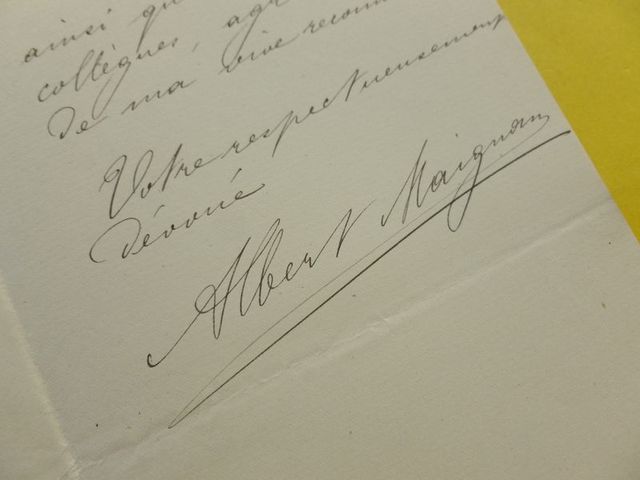 ainsi qu
collègues, agr
De ma vive reconn
Votre respectueusement
dévoué
Albert Maignan